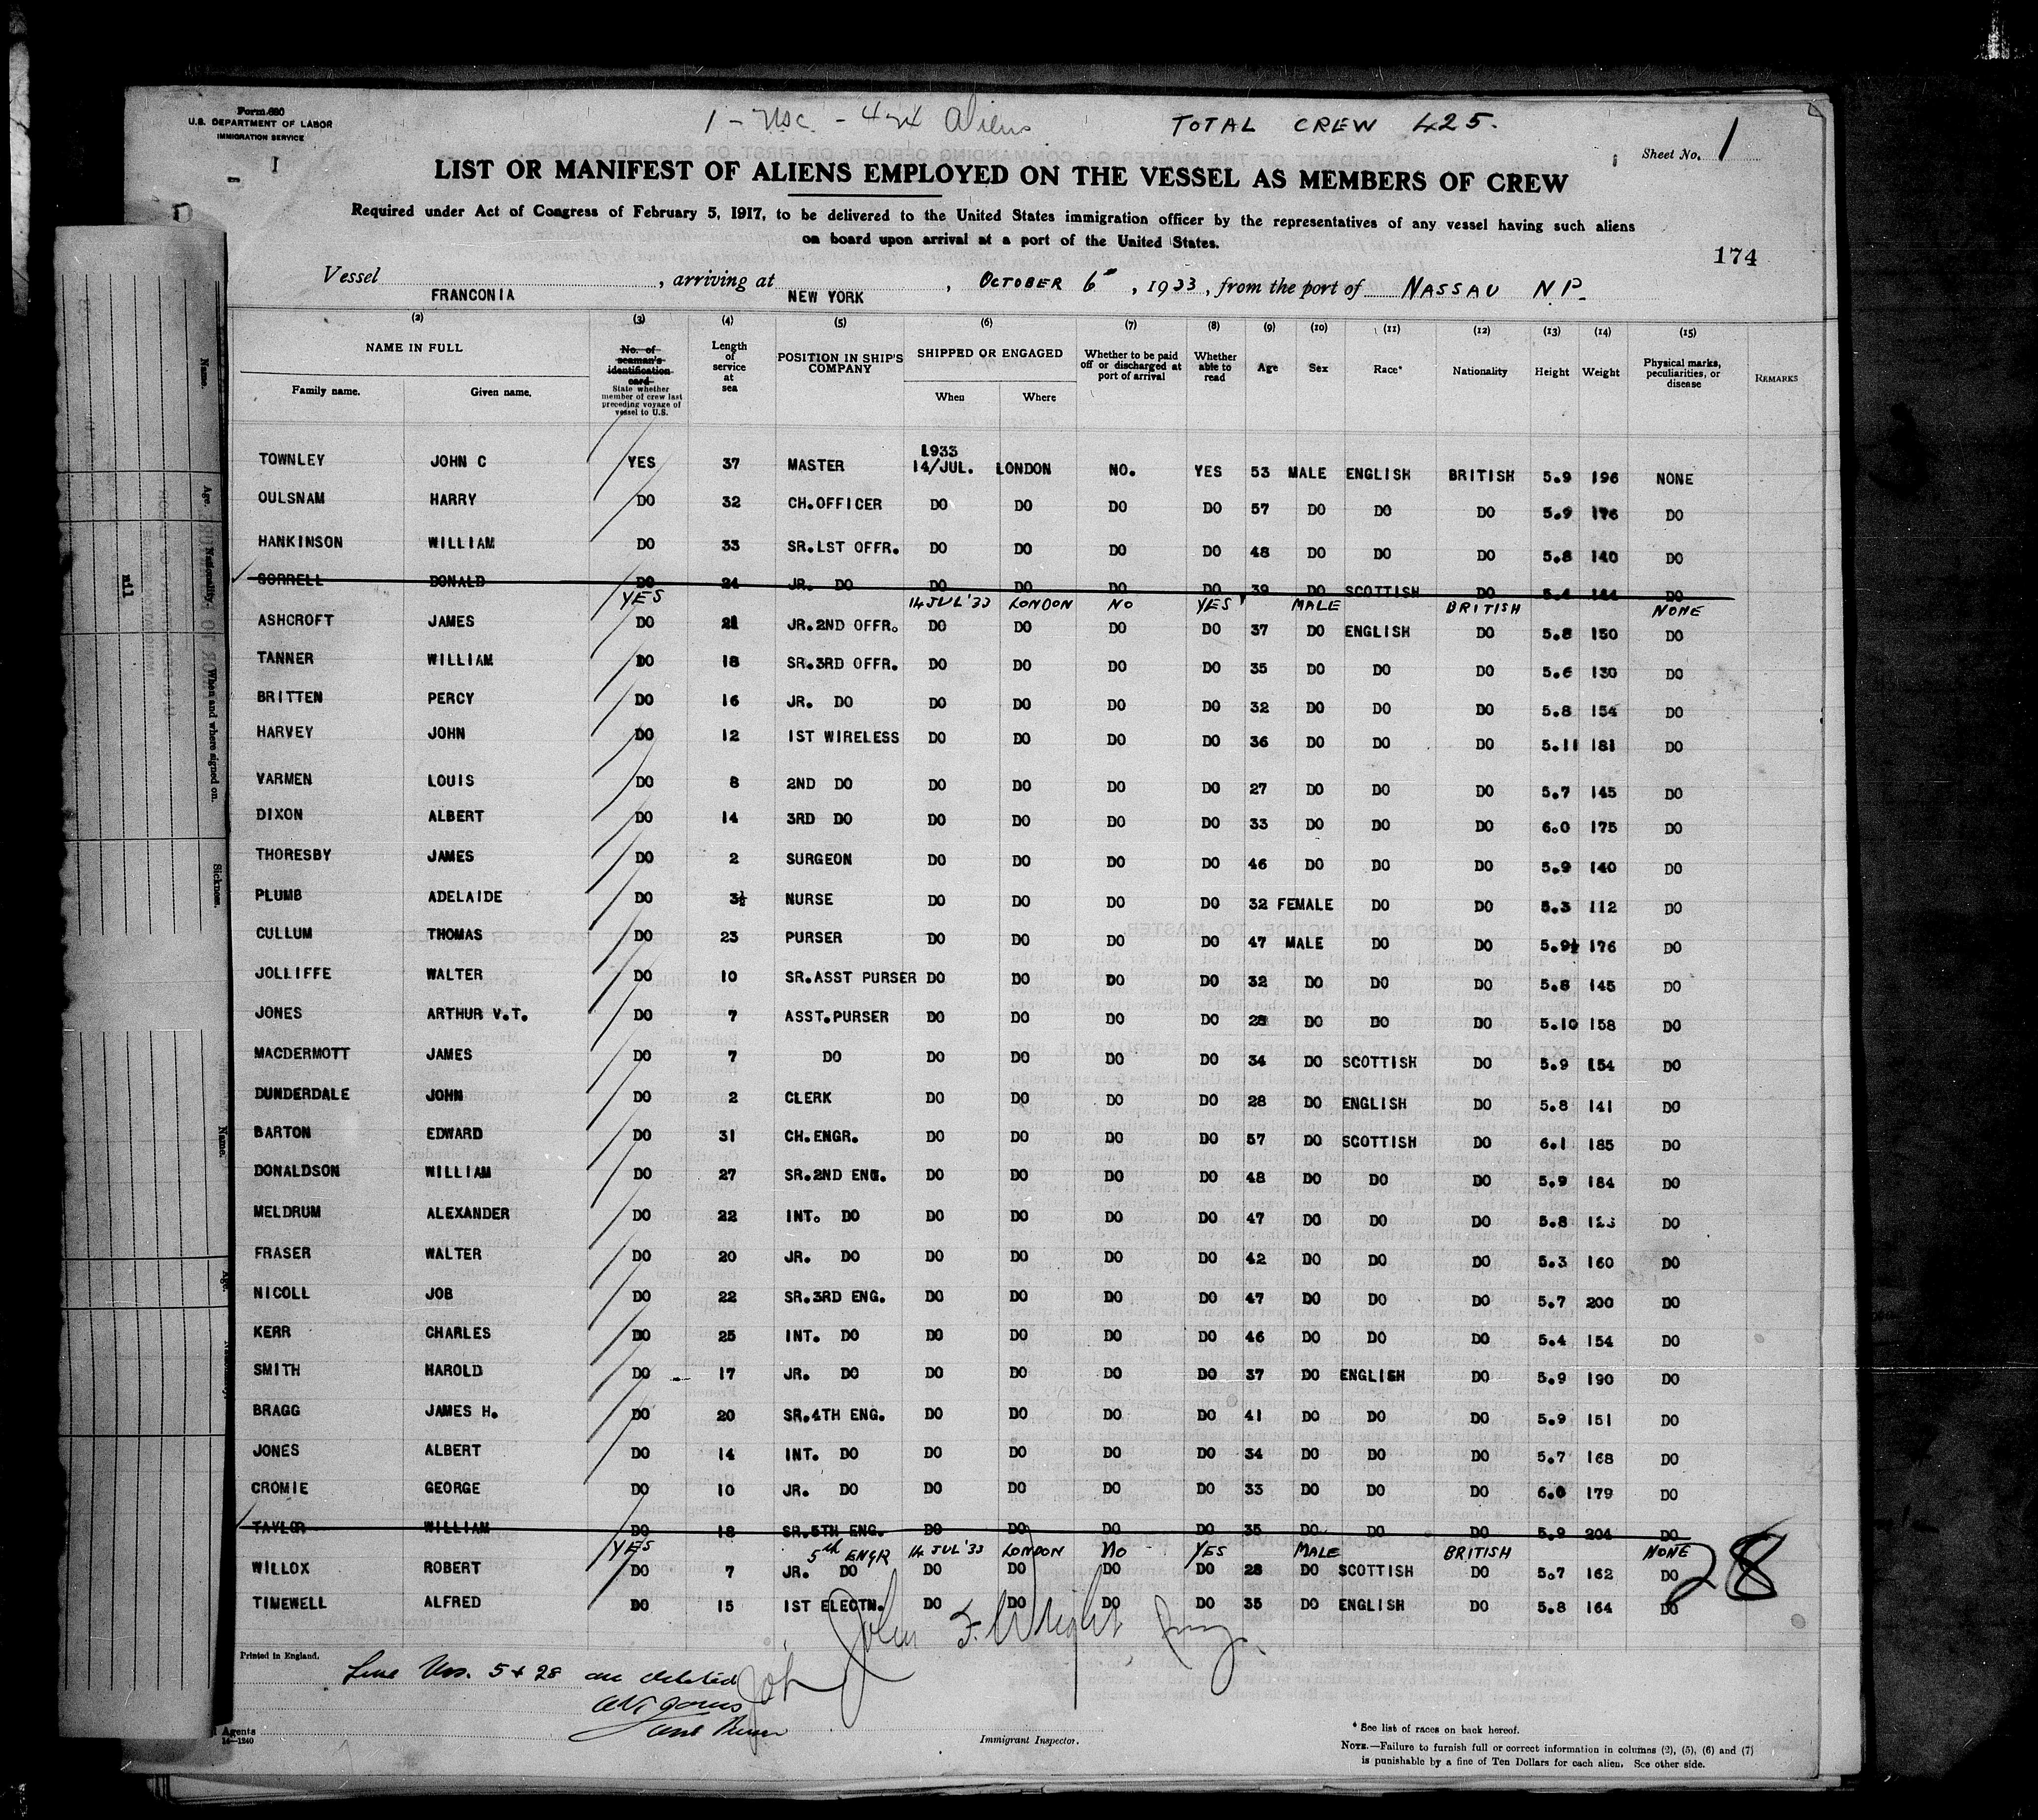 Form 680
U.S. DEPARTMENT OF LABOR
IMMIGRATION SERVICE
TOTAL CREW 425.
Sheet No. 1
LIST OR MANIFEST OF ALIENS EMPLOYED ON THE VESSEL AS MEMBERS OF CREW
Required under Act of Congress of February 5, 1917, to be delivered to the United States immigration officer by the representatives of any vessel having such aliens
on board upon arrival at a port of the United States.
174
Vessel FRANCONIA, arriving at NEW YORK, OCTOBER 6th, 1933, from the port of NASSAU N.P.
(2) (3) (4) (5) (6) (7) (8) (9) (10) (11) (12) (13) (14) (15)
NAME IN FULL Family name. Given name. No. of seaman's identification card State whether member of crew last preceding voyage of vessel to U.S. Length of service at sea POSITION IN SHIP'S COMPANY SHIPPED OR ENGAGED When Where Whether to be paid off or discharged at port of arrival Whether able to read Age Sex Race* Nationality Height Weight Physical marks, peculiarities, or disease REMARKS
TOWNLEY JOHN C YES 37 MASTER 1933 14/JUL. LONDON NO. YES 53 MALE ENGLISH BRITISH 5.9 196 NONE
OULSNAM HARRY DO 32 CH.OFFICER DO DO DO DO 57 DO DO DO 5.9 176 DO
HANKINSON WILLIAM DO 33 SR.1ST OFFR. DO DO DO DO 48 DO DO DO 5.8 140 DO
SORRELL DONALD DO 24 JR. DO DO DO DO DO 39 DO SCOTTISH DO 5.4 DO
YES 14 JUL '33 LONDON NO YES MALE BRITISH NONE
ASHCROFT JAMES DO 21 JR.2ND OFFR. DO DO DO DO 37 DO ENGLISH DO 5.8 150 DO
TANNER WILLIAM DO 18 SR.3RD OFFR. DO DO DO DO 35 DO DO DO 5.6 130 DO
BRITTEN PERCY DO 16 JR. DO DO DO DO DO 32 DO DO DO 5.8 154 DO
HARVEY JOHN DO 12 1ST WIRELESS DO DO DO DO 36 DO DO DO 5.11 181 DO
VARMEN LOUIS DO 8 2ND DO DO DO DO DO 27 DO DO DO 5.7 145 DO
DIXON ALBERT DO 14 3RD DO DO DO DO DO 33 DO DO DO 6.0 175 DO
THORESBY JAMES DO 2 SURGEON DO DO DO DO 46 DO DO DO 5.9 140 DO
PLUMB ADELAIDE DO 3½ NURSE DO DO DO DO 32 FEMALE DO DO 5.3 112 DO
CULLUM THOMAS DO 23 PURSER DO DO DO DO 47 MALE DO DO 5.9½ 176 DO
JOLLIFFE WALTER DO 10 SR.ASST PURSER DO DO DO DO 32 DO DO DO 5.8 145 DO
JONES ARTHUR V.T. DO 7 ASST.PURSER DO DO DO DO 28 DO DO DO 5.10 158 DO
MACDERMOTT JAMES DO 7 DO DO DO DO DO 34 DO SCOTTISH DO 5.9 154 DO
DUNDERDALE JOHN DO 2 CLERK DO DO DO DO 28 DO ENGLISH DO 5.8 141 DO
BARTON EDWARD DO 31 CH.ENGR. DO DO DO DO 57 DO SCOTTISH DO 6.1 185 DO
DONALDSON WILLIAM DO 27 SR.2ND ENG. DO DO DO DO 48 DO DO DO 5.9 184 DO
MELDRUM ALEXANDER DO 22 INT. DO DO DO DO DO 47 DO DO DO 5.8 DO
FRASER WALTER DO 20 JR. DO DO DO DO DO 42 DO DO DO 5.3 160 DO
NICOLL JOB DO 22 SR.3RD ENG. DO DO DO DO 47 DO DO DO 5.7 200 DO
KERR CHARLES DO 25 INT. DO DO DO DO DO 46 DO DO DO 5.4 154 DO
SMITH HAROLD DO 17 JR. DO DO DO DO DO 37 DO ENGLISH DO 5.9 190 DO
BRAGG JAMES H. DO 20 SR.4TH ENG. DO DO DO DO 41 DO DO DO 5.9 151 DO
JONES ALBERT DO 14 INT. DO DO DO DO DO 34 DO DO DO 5.7 168 DO
CROMIE GEORGE DO 10 JR. DO DO DO DO DO 33 DO DO DO 6.0 179 DO
TAYLOR WILLIAM DO 18 SR.5TH ENG. DO DO DO DO 35 DO DO DO 5.9 204 DO
YES 5th ENGR 14 JUL '33 LONDON NO YES MALE BRITISH NONE
WILLOX ROBERT DO 7 JR. DO DO DO DO DO 28 DO SCOTTISH DO 5.7 162 DO
TIMEWELL ALFRED DO 15 1ST ELECTN. DO DO DO DO 35 DO ENGLISH DO 5.8 164 DO
28
John F. Wright
Printed in England.
Line Nos. 5 + 28 are deleted
Immigrant Inspector.
Agents
14—1240
* See list of races on back hereof.
NOTE.—Failure to furnish full or correct information in columns (2), (5), (6) and (7)
is punishable by a fine of Ten Dollars for each alien. See other side.
Name.
Age.
Nationality.
When and where signed on.
Sickness.
nil
Name.
Age.